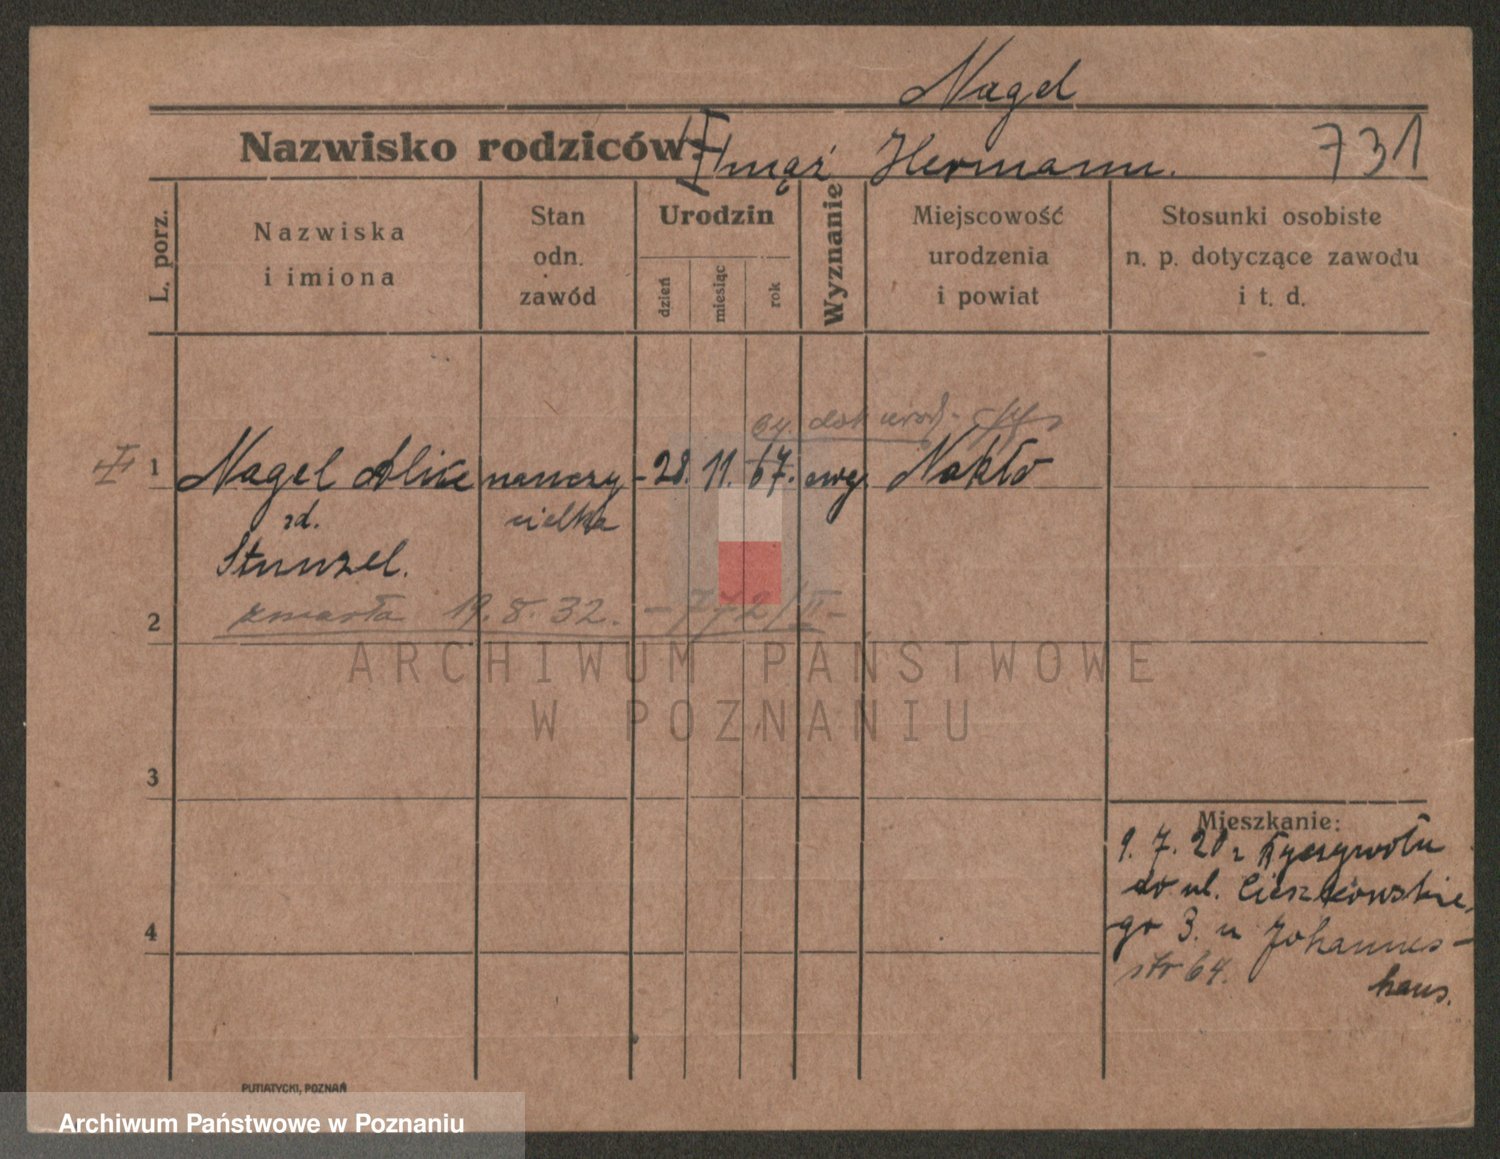 Nagel
Nazwisko rodziców: I mąż Hermann. 731
L. porz.
Nazwiska
i imiona
Stan
odn.
zawód
Urodzin
dzień
miesiąc
rok
Wyznanie
Miejscowość
urodzenia
i powiat
Stosunki osobiste
n. p. dotyczące zawodu
i t. d.
64. dok urodz.
I 1 Nagel Alice nauczy- 28. 11. 67. ewg. Nakło
zd. cielka
Stunzel.
zmarła 19. 8. 32. - 772/II -
2
3
4
Mieszkanie:
9. 7. 20 z Ryczywołu
do ul. Cieszkowskie
go 3. u Johannes-
str 64. haus.
PUTIATYCKI, POZNAŃ
ARCHIWUM PAŃSTWOWE
W POZNANIU
Archiwum Państwowe w Poznaniu